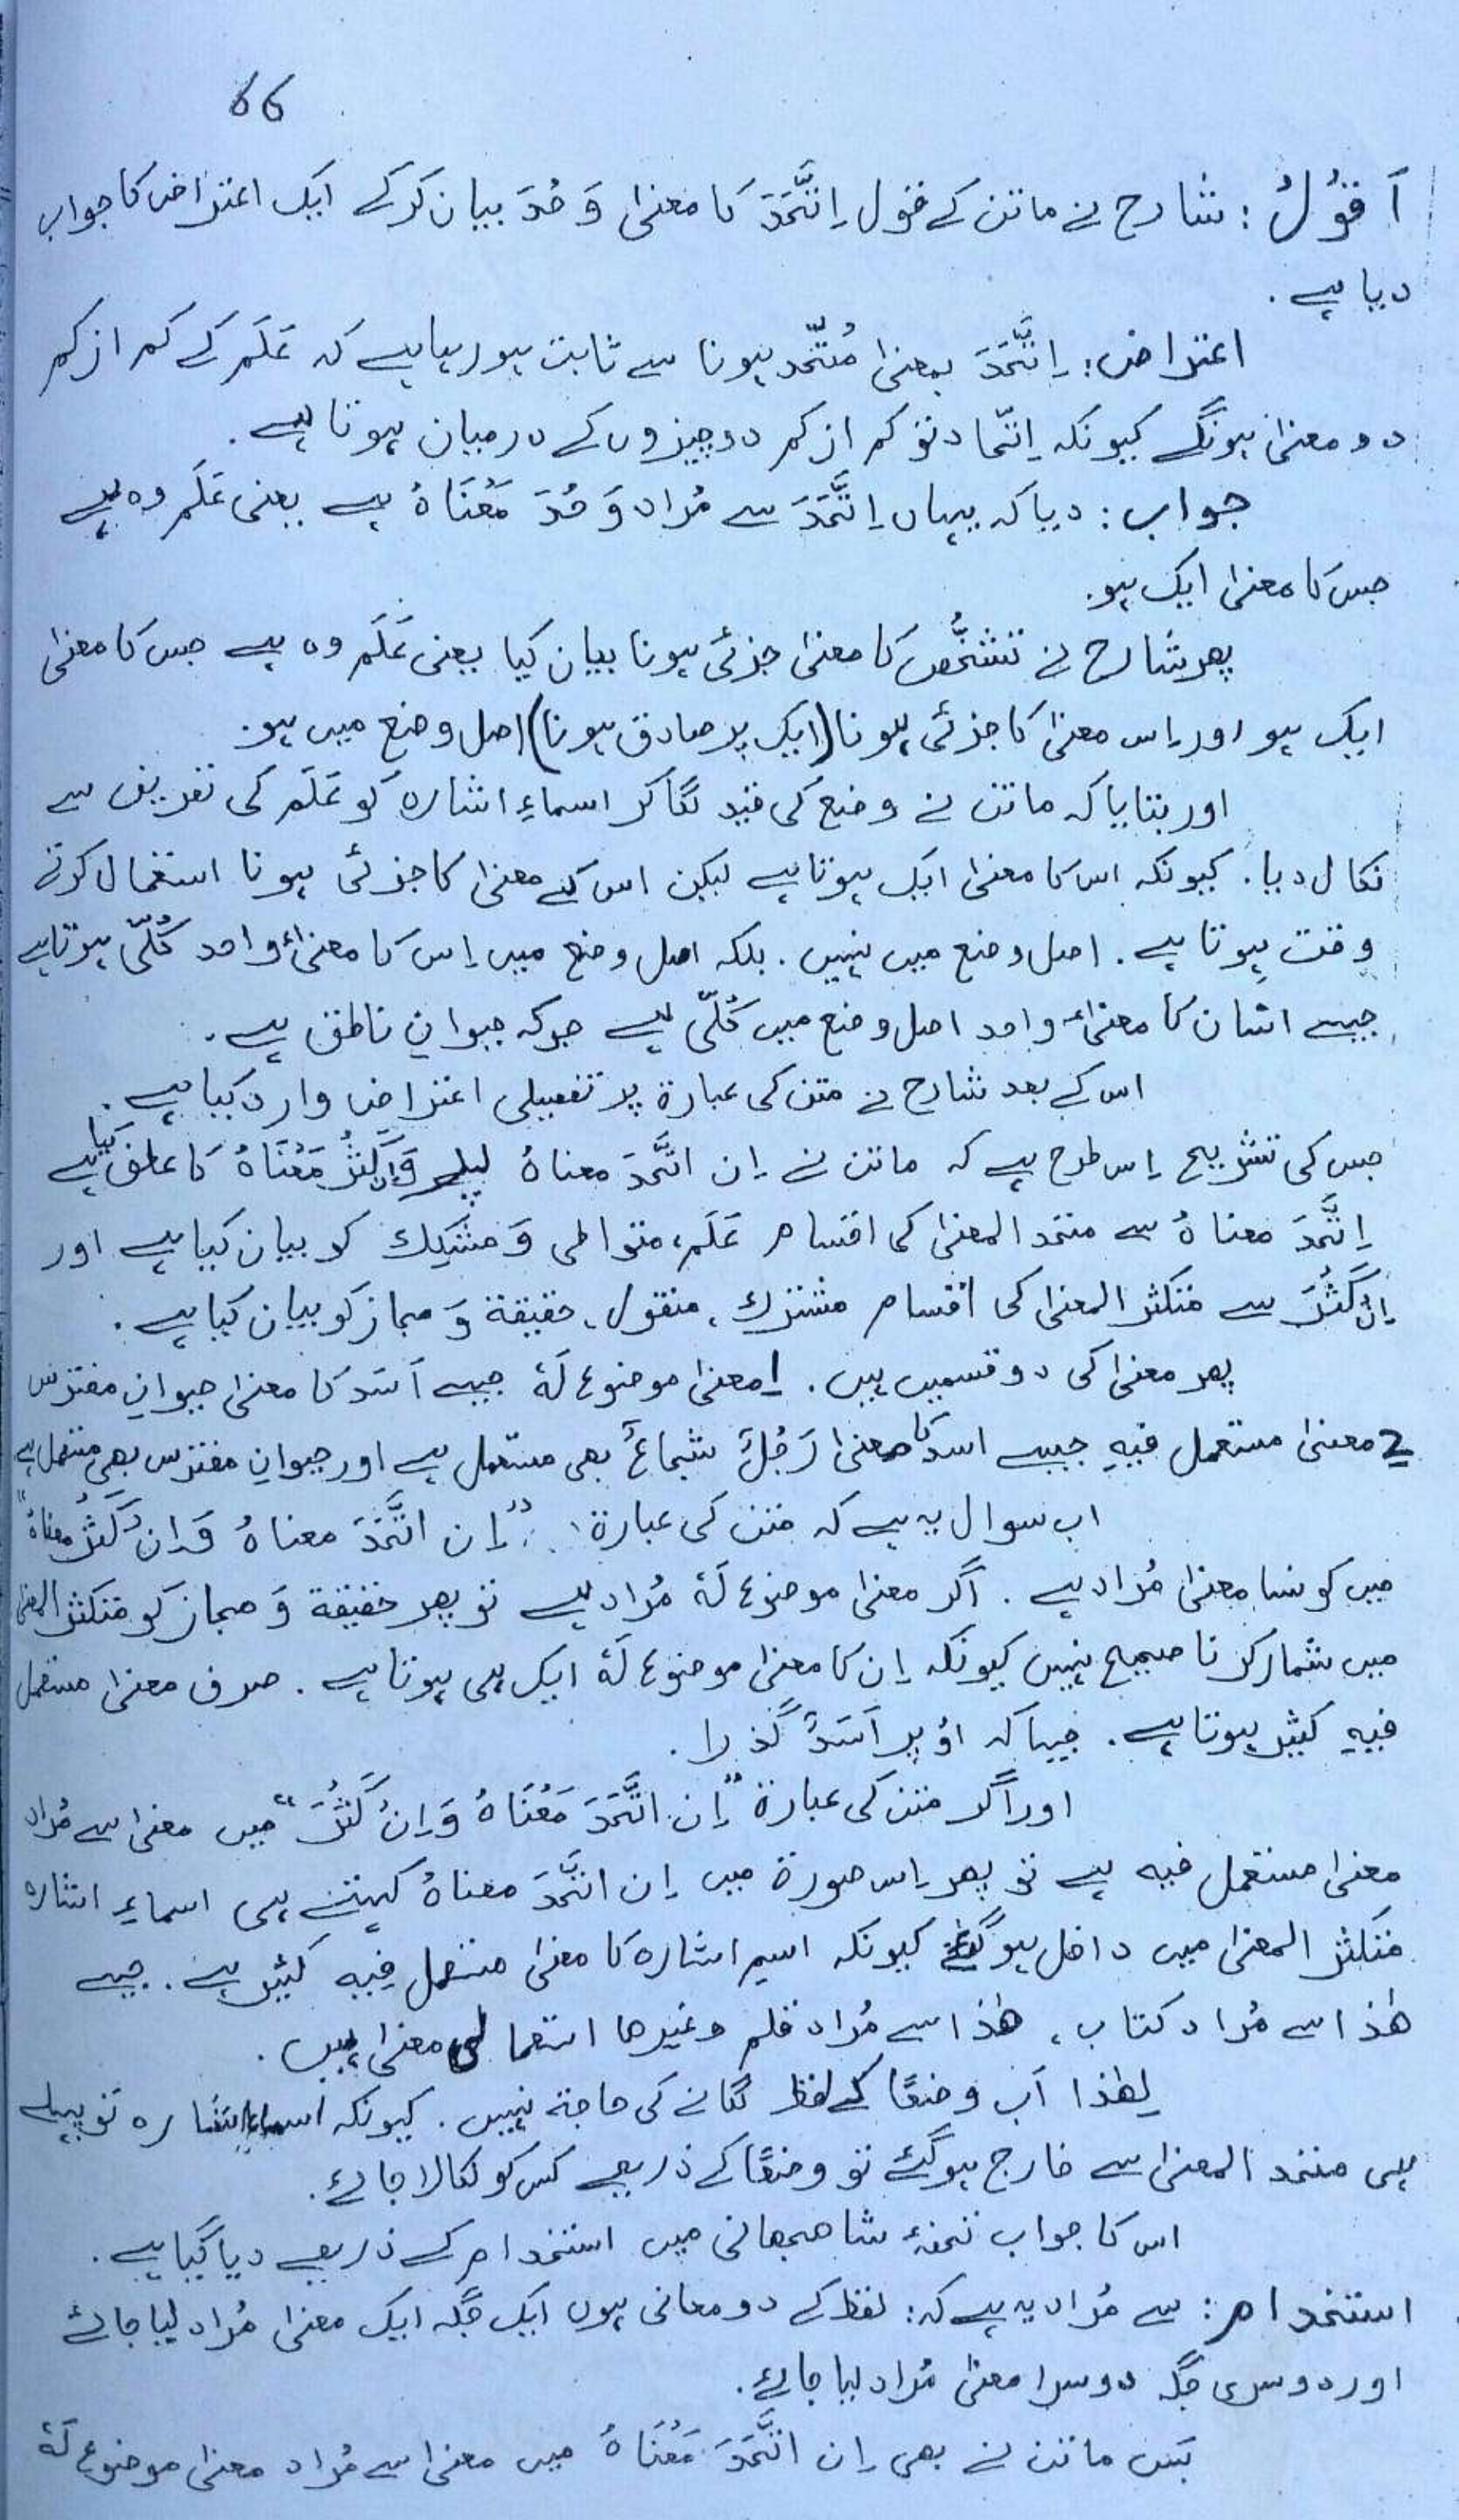 66
اَقُوْلُ : شارح نے ماتن کے قول اِتَّحَدَ کا معنیٰ وَحُدَ بیان کرکے ایک اعتراض کا جواب
دیا ہے .
اعتراض : اِتَّحَدَ بمعنیٰ مُتّحد ہونا سے ثابت ہورہا ہے کہ عَلَم کے کم از کم
دو معنیٰ ہونگے کیونکہ اِتّحاد تو کم از کم دو چیزوں کے درمیان ہوتا ہے .
جواب : دیا کہ یہاں اِتَّحَدَ سے مُراد وَحُدَ مَعْنَاہُ ہے یعنی عَلَم وہ ہے
جس کا معنیٰ ایک ہو.
پھر شارح نے تشخُّص کا معنیٰ جزئی ہونا بیان کیا یعنی عَلَم وہ ہے جس کا معنیٰ
ایک ہو اور اِس معنیٰ کا جزئی ہونا (ایک پر صادق ہونا) اصل وضع میں ہو.
اور بتایا کہ ماتن نے وضع کی قید لگا کر اسماءِ اشارہ کو عَلَم کی تعریف سے
نکال دیا. کیونکہ اس کا معنیٰ ایک ہوتا ہے لیکن اس کے معنیٰ کا جزئی ہونا استعمال کرتے
وقت ہوتا ہے . اصل وضع میں نہیں . بلکہ اصل وضع میں اِس کا معنیٰٔ واحد کُلّی ہوتا ہے
جیسے انسان کا معنیٰٔ واحد اصل وضع میں کُلّی ہے جوکہ حیوانِ ناطق ہے .
اس کے بعد شارح نے متن کی عبارۃ پر تفصیلی اعتراض وارد کیا ہے .
جس کی تشریح اِس طرح ہے کہ ماتن نے اِن اتَّحَدَ معناہُ پہلے وَاِنْ کَثُرَ مَعْنَاہُ کا عطف کیا ہے
اِتَّحَدَ معناہُ سے متحد المعنیٰ کی اقسام عَلَم، متواطی وَ مشکِک کو بیان کیا ہے اور
اِنْ کَثُرَ سے متکثر المعنیٰ کی اقسام مشترک ، منقول ، حقیقۃ وَ مجاز کو بیان کیا ہے .
پھر معنیٰ کی دو قسمیں ہیں . 1 معنیٰ موضوع لَہٗ جیسے اَسَد کا معنیٰ حیوانِ مفترس
2 معنیٰ مستعمل فیہِ جیسے اسد کا معنیٰ رَجُلٌ شجاعٌ بھی مستعمل ہے اور حیوانِ مفترس بھی مستعمل ہے
اب سوال یہ ہے کہ متن کی عبارۃ : "اِن اتَّحَدَ معناہُ وَاِنْ کَثُرَ معناہُ"
میں کونسا معنیٰ مُراد ہے . اگر معنیٰ موضوع لَہٗ مُراد ہے تو پھر حقیقۃ وَ مجاز کو متکثر المعنیٰ
میں شمار کرنا صحیح نہیں کیونکہ اِن کا معنیٰ موضوع لَہٗ ایک ہی ہوتا ہے . صرف معنیٰ مستعمل
فیہِ کثیر ہوتا ہے . جیسا کہ اوُپر اَسَدٌ گذرا .
اور اگر متن کی عبارۃ "اِن اتَّحَدَ مَعْنَاہُ وَاِنْ کَثُرَ" میں معنیٰ سے مُراد
معنیٰ مستعمل فیہ ہے تو پھر اِس صورۃ میں اِن اتَّحَدَ معناہُ کہتے ہی اسماءِ اشارہ
متکثر المعنیٰ میں داخل ہوگئے کیونکہ اسمِ اشارہ کا معنیٰ مستعمل فِیہِ کثیر ہے . جیسے
ھٰذا سے مُراد کتاب ، ھٰذا سے مُراد قلم وغیرھا استعمالی معنیٰ ہیں .
لھٰذا اَب وضعًا کے لفظ لگانے کی حاجۃ نہیں . کیونکہ اسماءِ اشارہ تو پہلے
ہی متحد المعنیٰ سے خارج ہوگئے تو وضعًا کے ذریعے کس کو نکالا جائے .
اس کا جواب تحفۂ شاھجھانی میں استخدام کے ذریعے دیا گیا ہے .
استخدام : سے مُراد یہ ہے کہ : لفظ کے دو معانی ہوں ایک جگہ ایک معنیٰ مُراد لیا جائے
اور دوسری جگہ دوسرا معنیٰ مُراد لیا جائے .
بَس ماتن نے بھی اِن اتَّحَدَ مَعْنَاہُ میں معنیٰ سے مُراد معنیٰ موضوع لَہٗ